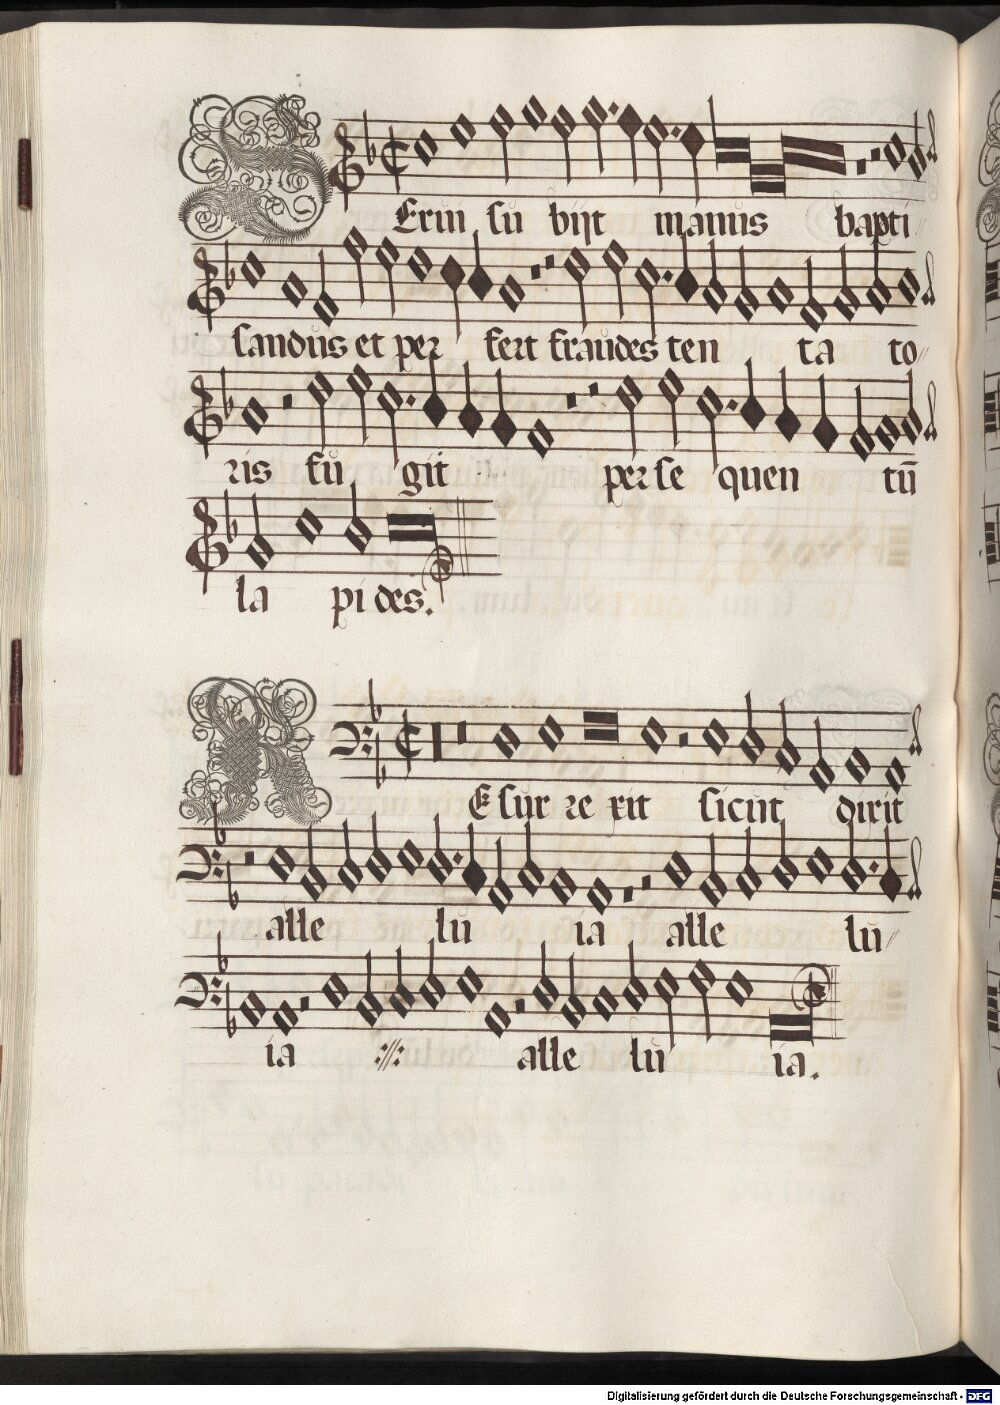 SErui su biit manus bapti
sandus et per fert fraudes ten ta to
ris fu git per se quen tū
la pi des.
REsur re xit sicut dixit
alle lu ia alle lu
ia :||: alle lu ia.
Digitalisierung gefördert durch die Deutsche Forschungsgemeinschaft - DFG